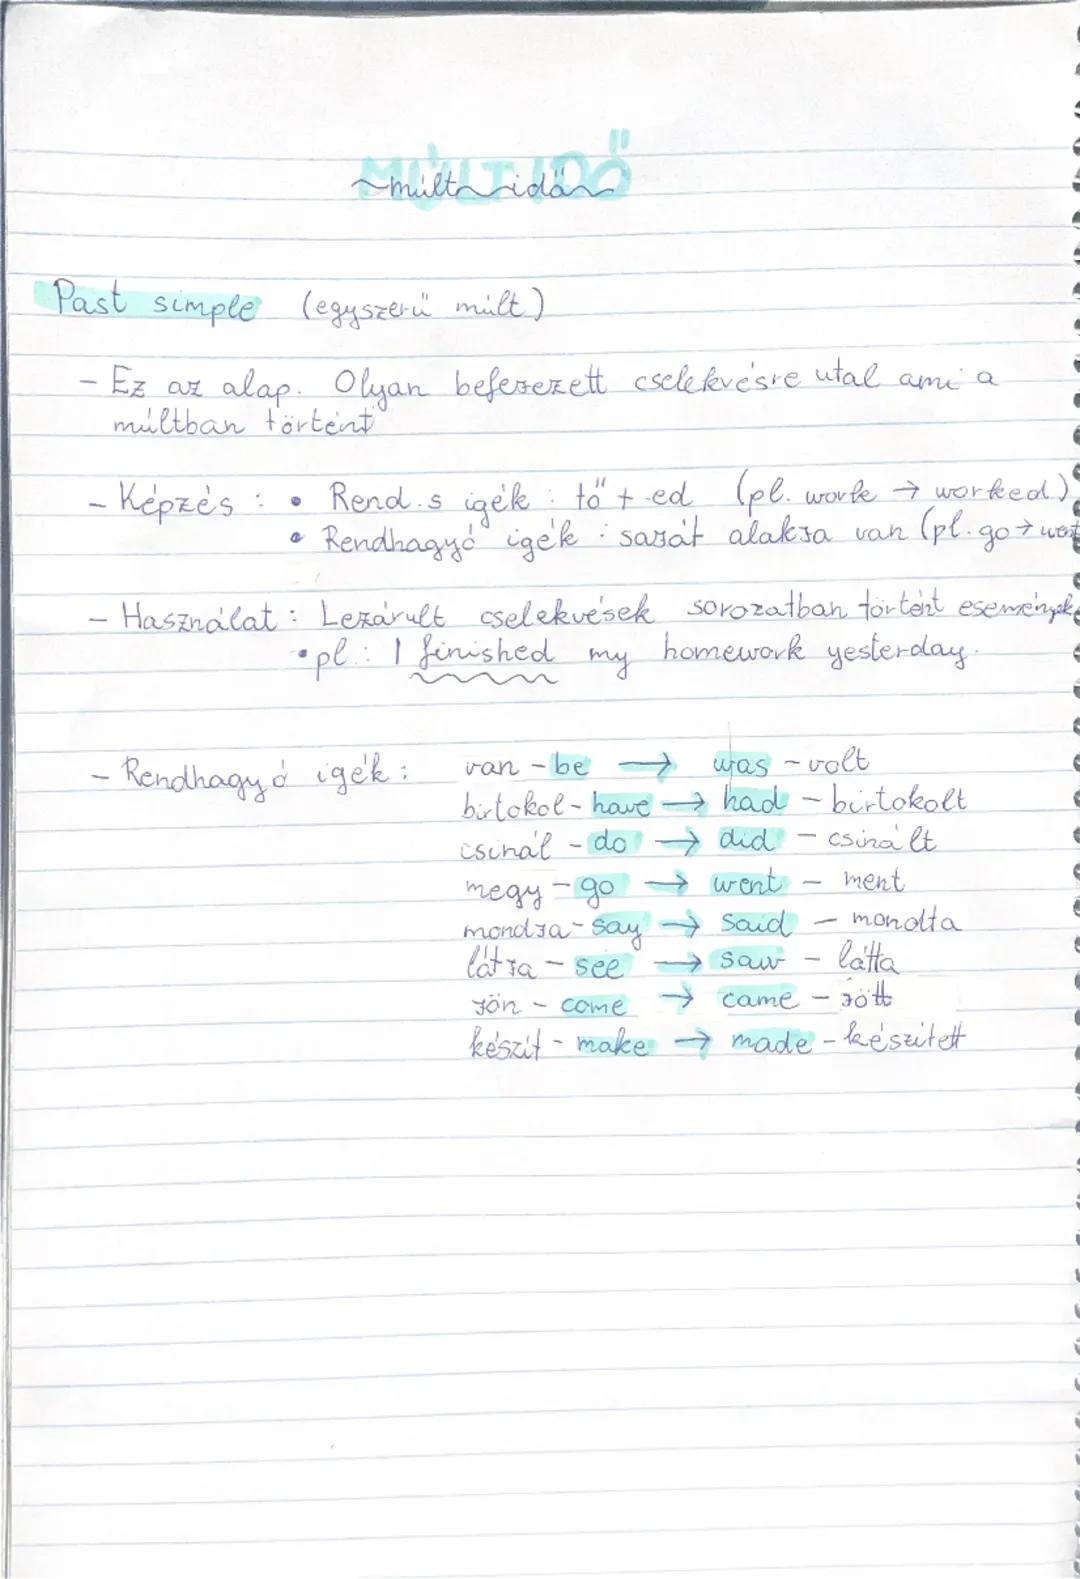 MÚLT IDŐ
~múlt idő~
Past simple (egyszerű múlt)
- Ez az alap. Olyan befejezett cselekvésre utal ami a
múltban történt
- Képzés: • Rend.s igék: tő + ed (pl. work → worked)
• Rendhagyó igék: saját alakja van (pl. go → went
- Használat: Lezárult cselekvések sorozatban történt események
• pl.: I finished my homework yesterday.
- Rendhagyó igék: van - be → was - volt
birtokol - have → had - birtokolt
csinál - do → did - csinált
megy - go → went - ment
mondja - say → said - mondta
látja - see → saw - látta
jön - come → came - jött
készít - make → made - készített